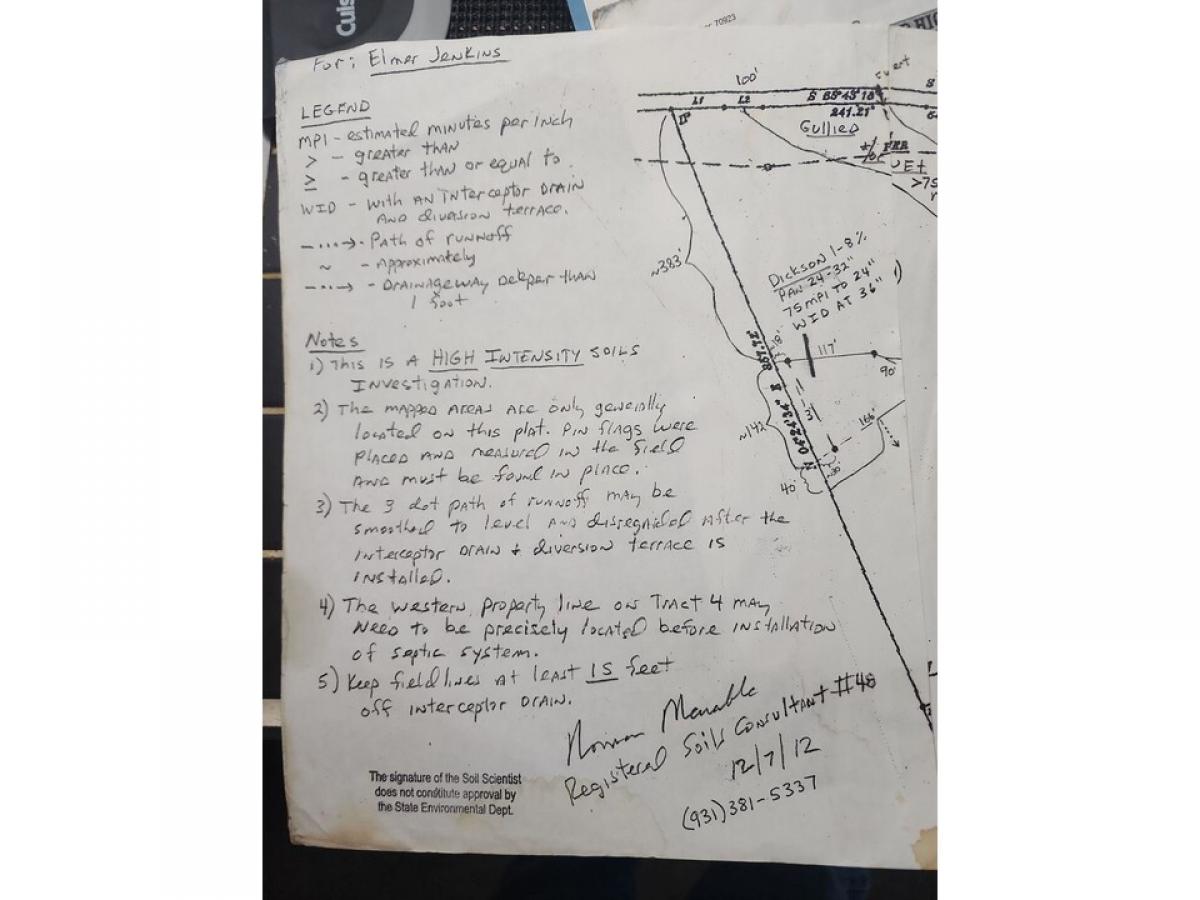 Cuis
70923
For: Elmer Jenkins
LEGEND
MPI - estimated minutes per inch
> - greater than
≥ - greater than or equal to.
WID - with AN INterceptor DRAIN
AND diversion terrace.
Path of runnoff
~ - Approximately
- DRAINAGEWAY DEEPER than
1 foot
Notes
1) This is A HIGH INTENSITY SOILS
INVestigation.
2) The mapped Areas are only generally
located on this plat. Pin flags were
placed AND measured in the field
AND must be found in place.
3) The 3 dot path of runnoff may be
smoothed to level AND disregarded After the
interceptor DRAIN & diversion terrace is
installed.
4) The western property line on Tract 4 may
Need to be precisely located before INstallation
of septic system.
5) Keep field lines at least 15 feet
off interceptor DRAIN.
Registered Soils Consultant #48
12/7/12
(931)381-5337
The signature of the Soil Scientist
does not constitute approval by
the State Environmental Dept.
100'
L1 L2
241.21'
IP
Gullied
>75
~383'
Dickson 1-8%
PAN 24-32"
75 MPI TO 24"
WID AT 36"
18'
117'
90'
~142'
166'
40'